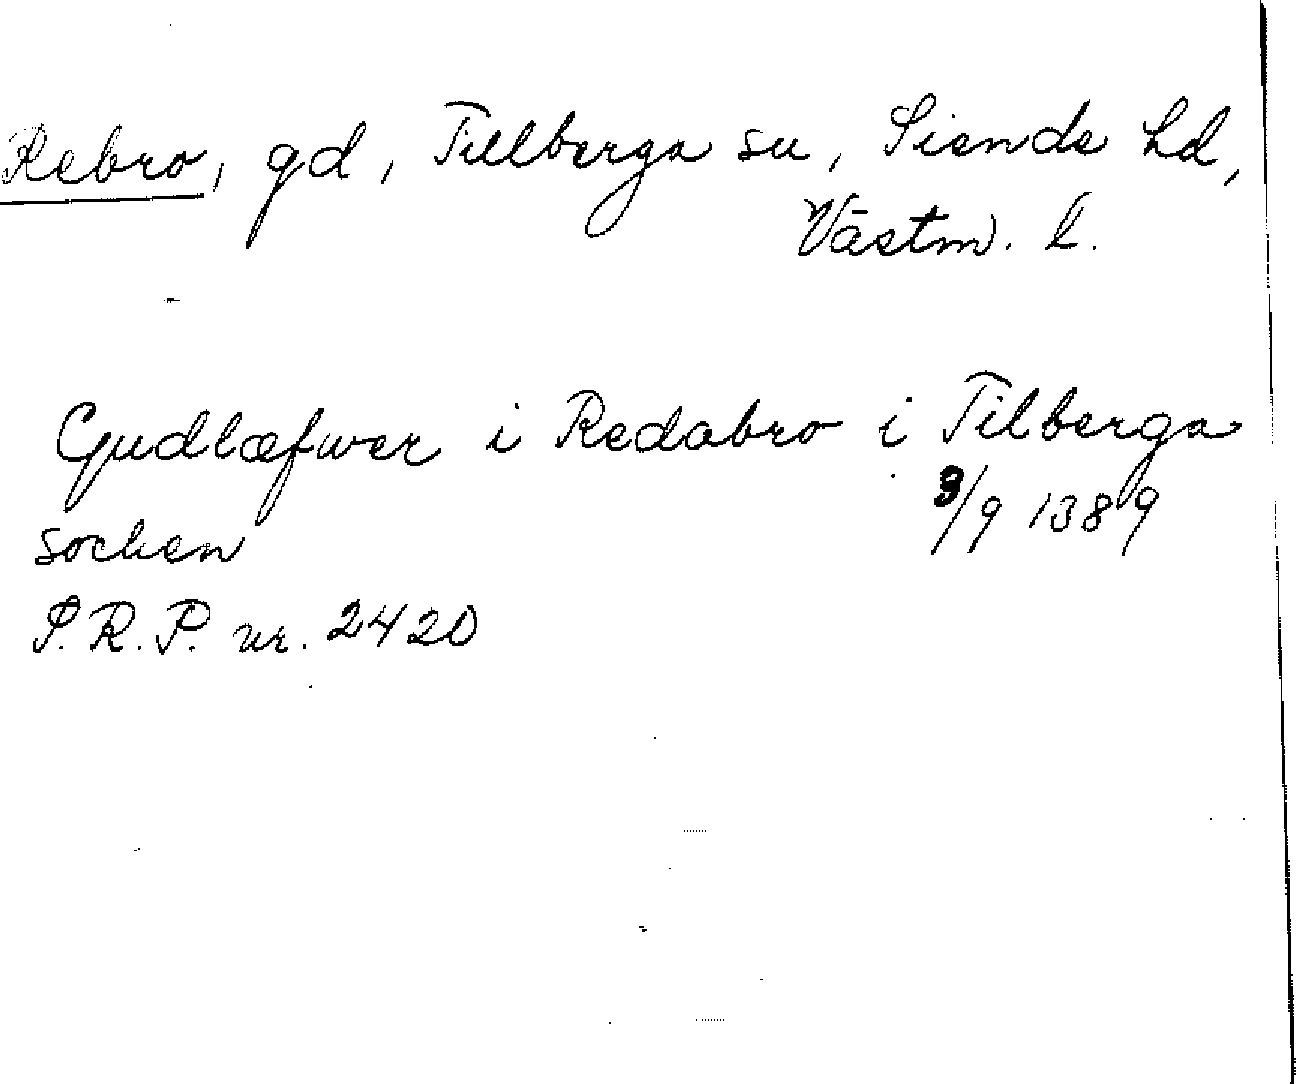 Rebro, gd, Tillberga sn, Siende hd,
Västm. l.
Gudlæfwer i Redabro i Tilberga
socken 3/9 1389
S.R.P. nr. 2420